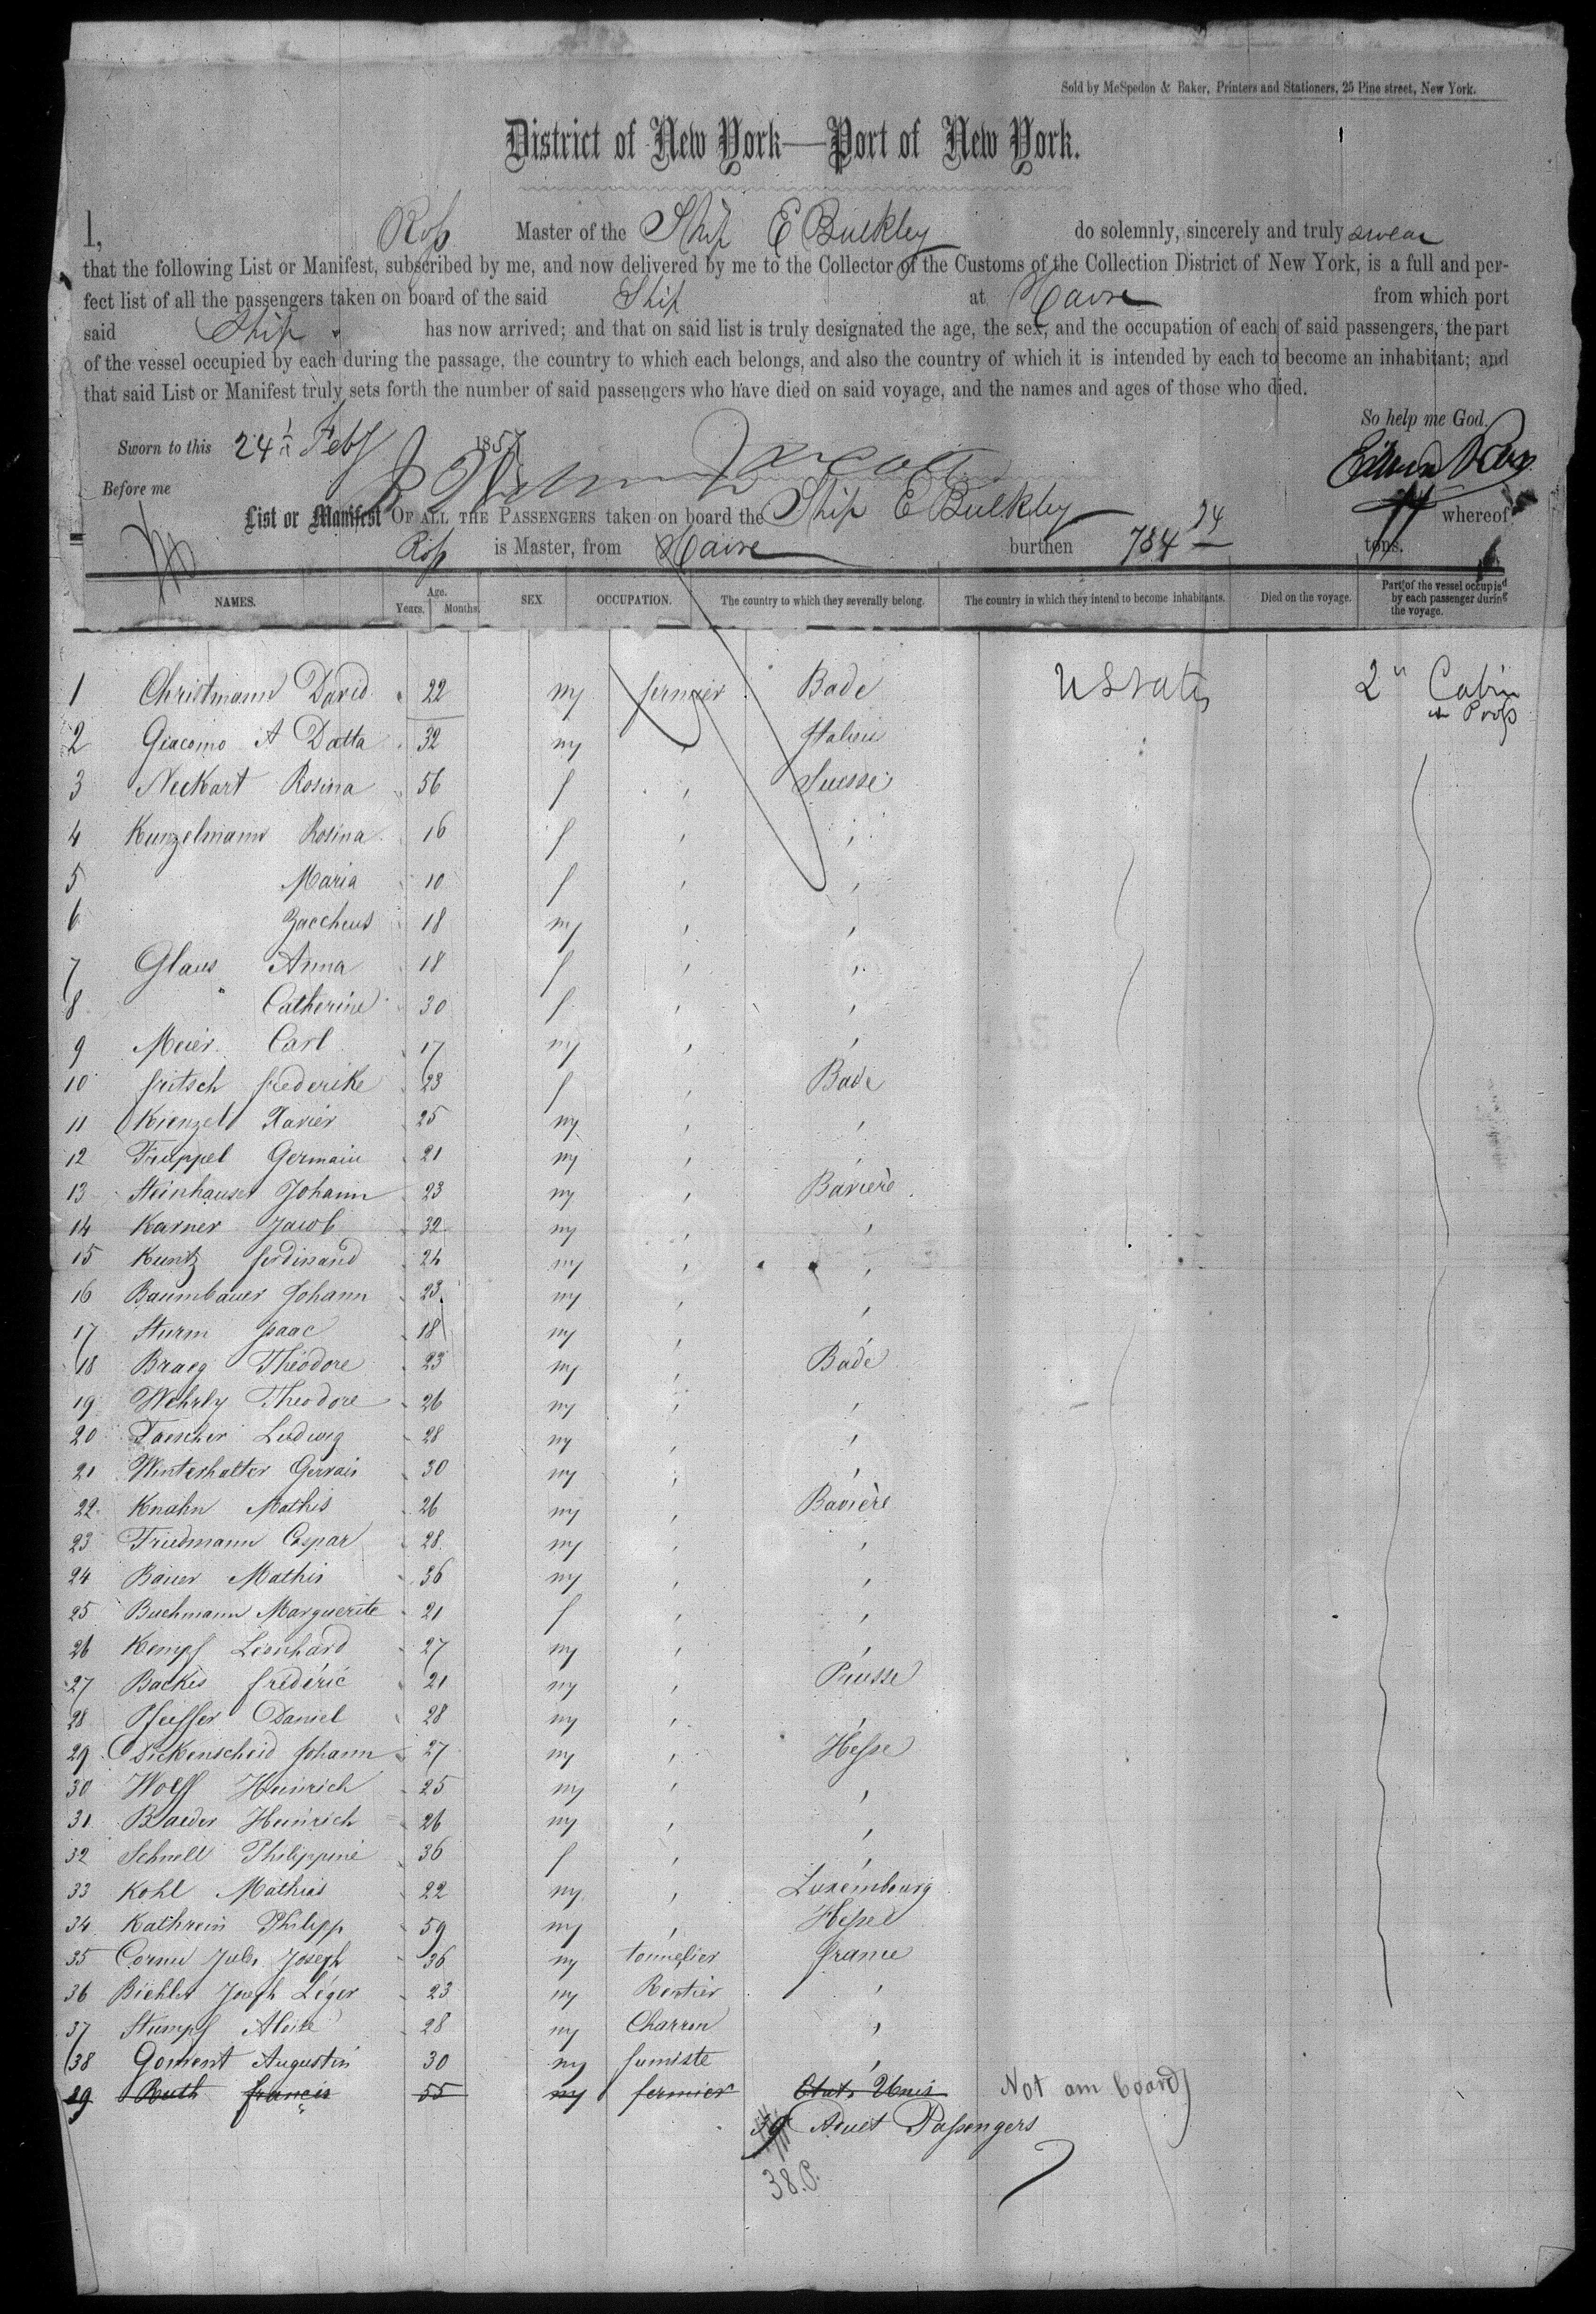 Sold by McSpedon & Baker, Printers and Stationers, 25 Pine street, New York.
District of New York—Port of New York.
I, Ross Master of the Ship E Bulkley do solemnly, sincerely and truly swear
that the following List or Manifest, subscribed by me, and now delivered by me to the Collector of the Customs of the Collection District of New York, is a full and per-
fect list of all the passengers taken on board of the said Ship at Havre from which port
said Ship has now arrived; and that on said list is truly designated the age, the sex, and the occupation of each of said passengers, the part
of the vessel occupied by each during the passage, the country to which each belongs, and also the country of which it is intended by each to become an inhabitant; and
that said List or Manifest truly sets forth the number of said passengers who have died on said voyage, and the names and ages of those who died.
So help me God.
Sworn to this 24th Feby 1857
Before me
List or Manifest OF ALL THE PASSENGERS taken on board the Ship E Bulkley whereof
Ross is Master, from Havre burthen 784 24 tons.
NAMES. Age. Years. Months. SEX. OCCUPATION. The country to which they severally belong. The country in which they intend to become inhabitants. Died on the voyage. Part of the vessel occupied by each passenger during the voyage.
1 Christmann David 22 m fermier Bade U States 2d Cabin
Poop
2 Giacomo A Datta 32 m " Italien
3 Neckart Rosina 56 f " Suisse
4 Kunzelmann Rosina 16 f " "
5 Maria 10 f " "
6 Zaccheus 18 m " "
7 Glaus Anna 18 f " "
8 " Catherine 30 f " "
9 Meier Carl 17 m " "
10 fritsch frederike 23 f " Bade
11 Kienzel Xavier 25 m " "
12 Truppel Germain 21 m " "
13 Steinhauser Johann 23 m " Bavière
14 Karner Jacob 32 m " "
15 Kuntz ferdinand 24 m " "
16 Baumbauer Johann 23 m " "
17 Sturm Isaac 18 m " "
18 Braeg Théodore 23 m " Bade
19 Wehrly Theodore 26 m " "
20 Faescher Ludwig 28 m " "
21 Winterhalter Gervais 30 m " "
22 Knahn Mathis 26 m " Bavière
23 Friedmann Caspar 28 m " "
24 Bauer Mathis 36 m " "
25 Buchmann Marguerite 21 f " "
26 Kempf Léonhard 27 m " "
27 Backes frédéric 21 m " Prusse
28 Pfeiffer Daniel 28 m " "
29 Dickenscheid Johann 27 m " Hesse
30 Wolff Heinrich 25 m " "
31 Baeder Heinrich 26 m " "
32 Schnell Philippine 36 f " "
33 Kohl Mathias 22 m " Luxembourg
34 Kathrein Philipp 59 m " Hesse
35 Cornu Jules Joseph 36 m tonnelier france
36 Biehler Joseph Léger 23 m Rentier "
37 Stumpf Aloise 28 m Charron "
38 Goment Augustin 30 m fumiste "
39 Ruth francis 55 m fermier Etats Unis Not on board
39 Adult Passengers
38.P.